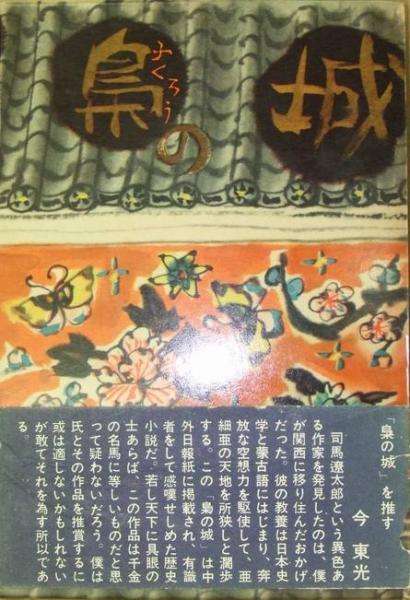 梟の城
ふくろう
「梟の城」を推す
今東光
司馬遼太郎という異色あ
る作家を発見したのは、僕
が関西に移り住んだおかげ
だった。彼の教養は日本史
学と蒙古語にはじまり、奔
放な空想力を駆使して、亜
細亜の天地を所狭しと濶歩
する。この「梟の城」は中
外日報紙に掲載され、有識
者をして感嘆せしめた歴史
小説だ。若し天下に具眼の
士あらば、この作品は千金
の名馬に等しいものだと思
つて疑わないだろう。僕は
氏とその作品を推賞するに
或は適しないかもしれない
が敢てそれを為す所以であ
る。